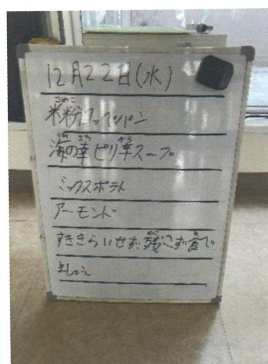 12月22日(水)
米粉
海の幸ピリ辛スープ
ミックスポテト
アーモンド
すききらいせず、残さず
ましょう